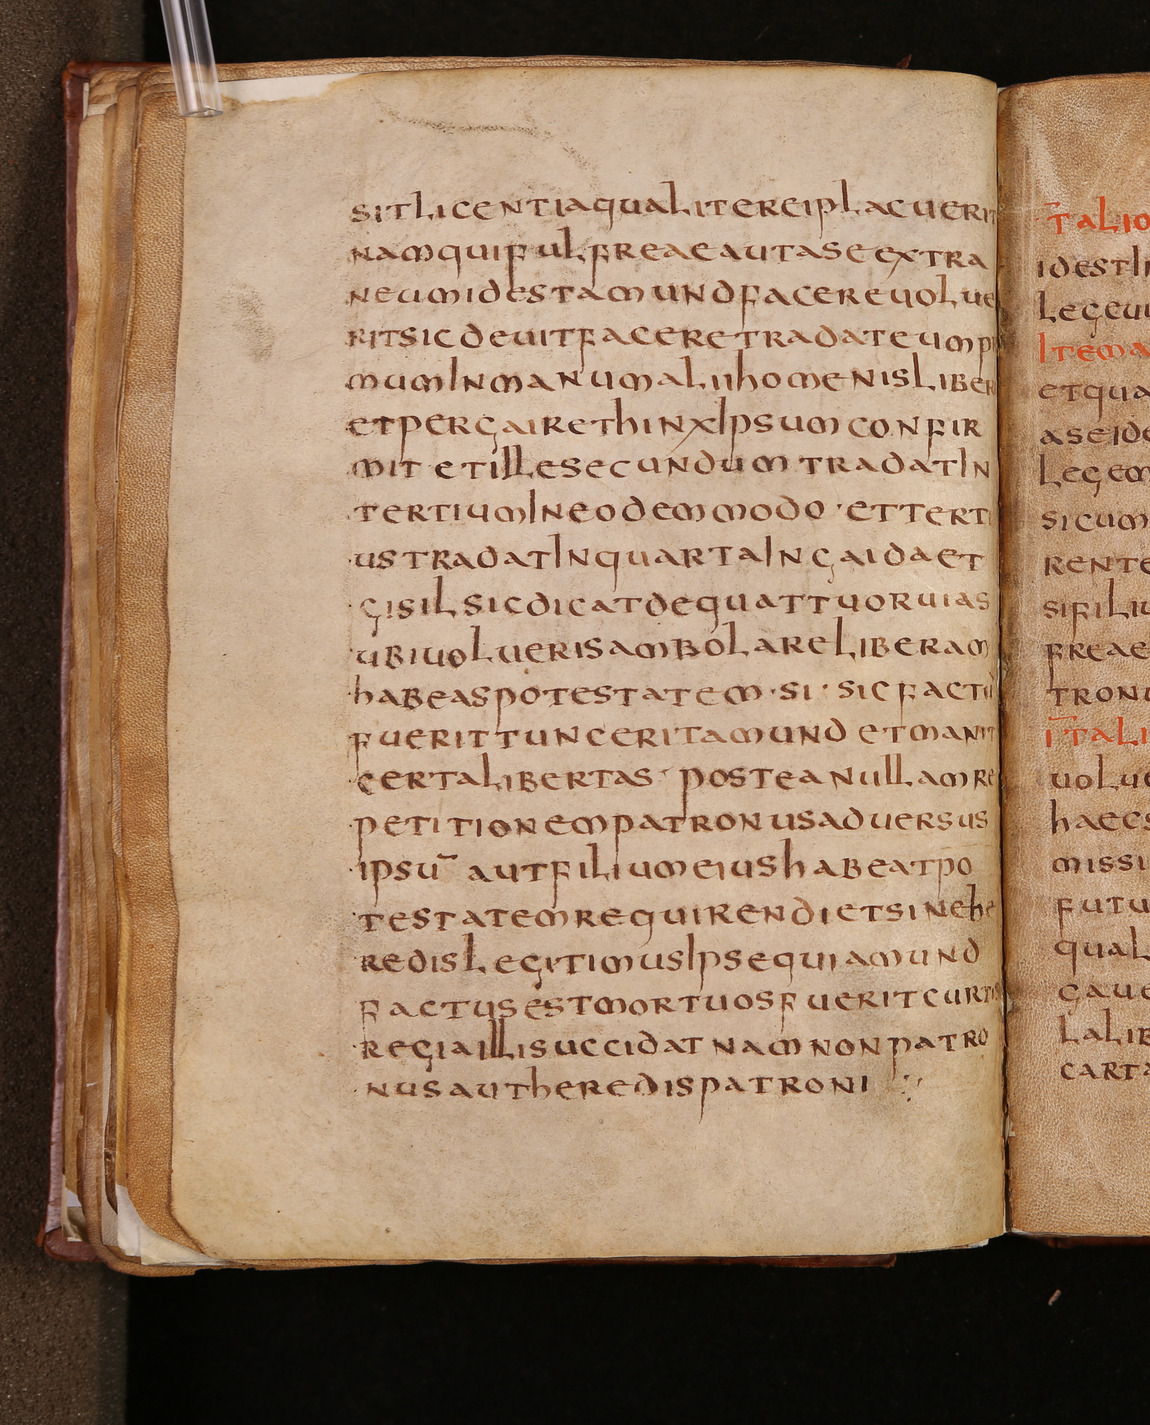 sitlicentiaqualitereiplacuerit
namquifulfreaeautaseextra
neumidestamundfacereuolue
ritsicdeuitfaceretradateumpri
muminmanumaliihomenisliberi
etpergairethinxipsumconfir
mit etillesecundum tradatin
tertiumineodemmodo · etterti
ustradatinquartaingaidaet
gisilsicdicatdequattuoruias
ubiuoluerisambolareliberam
habeaspotestatem · si · sicfactū
fuerittunceritamund etmanit
certalibertas · posteanullamre
petitionempatronusaduersus
ipsū autfiliumeiushabeatpo
testatemrequirendietsinehe
redislegitimusipsequiamund
factusestmortuosfueritcurti
regiaillisuccidat namnonpatro
nusautheredispatroni :,
ītalio
idestin
legeui
itema
etqua
aseide
legem
sicum
rente
sifiliu
freae
tronu
ītali
uolue
haecs
missi
futu
qual
gaue
lalib
carta